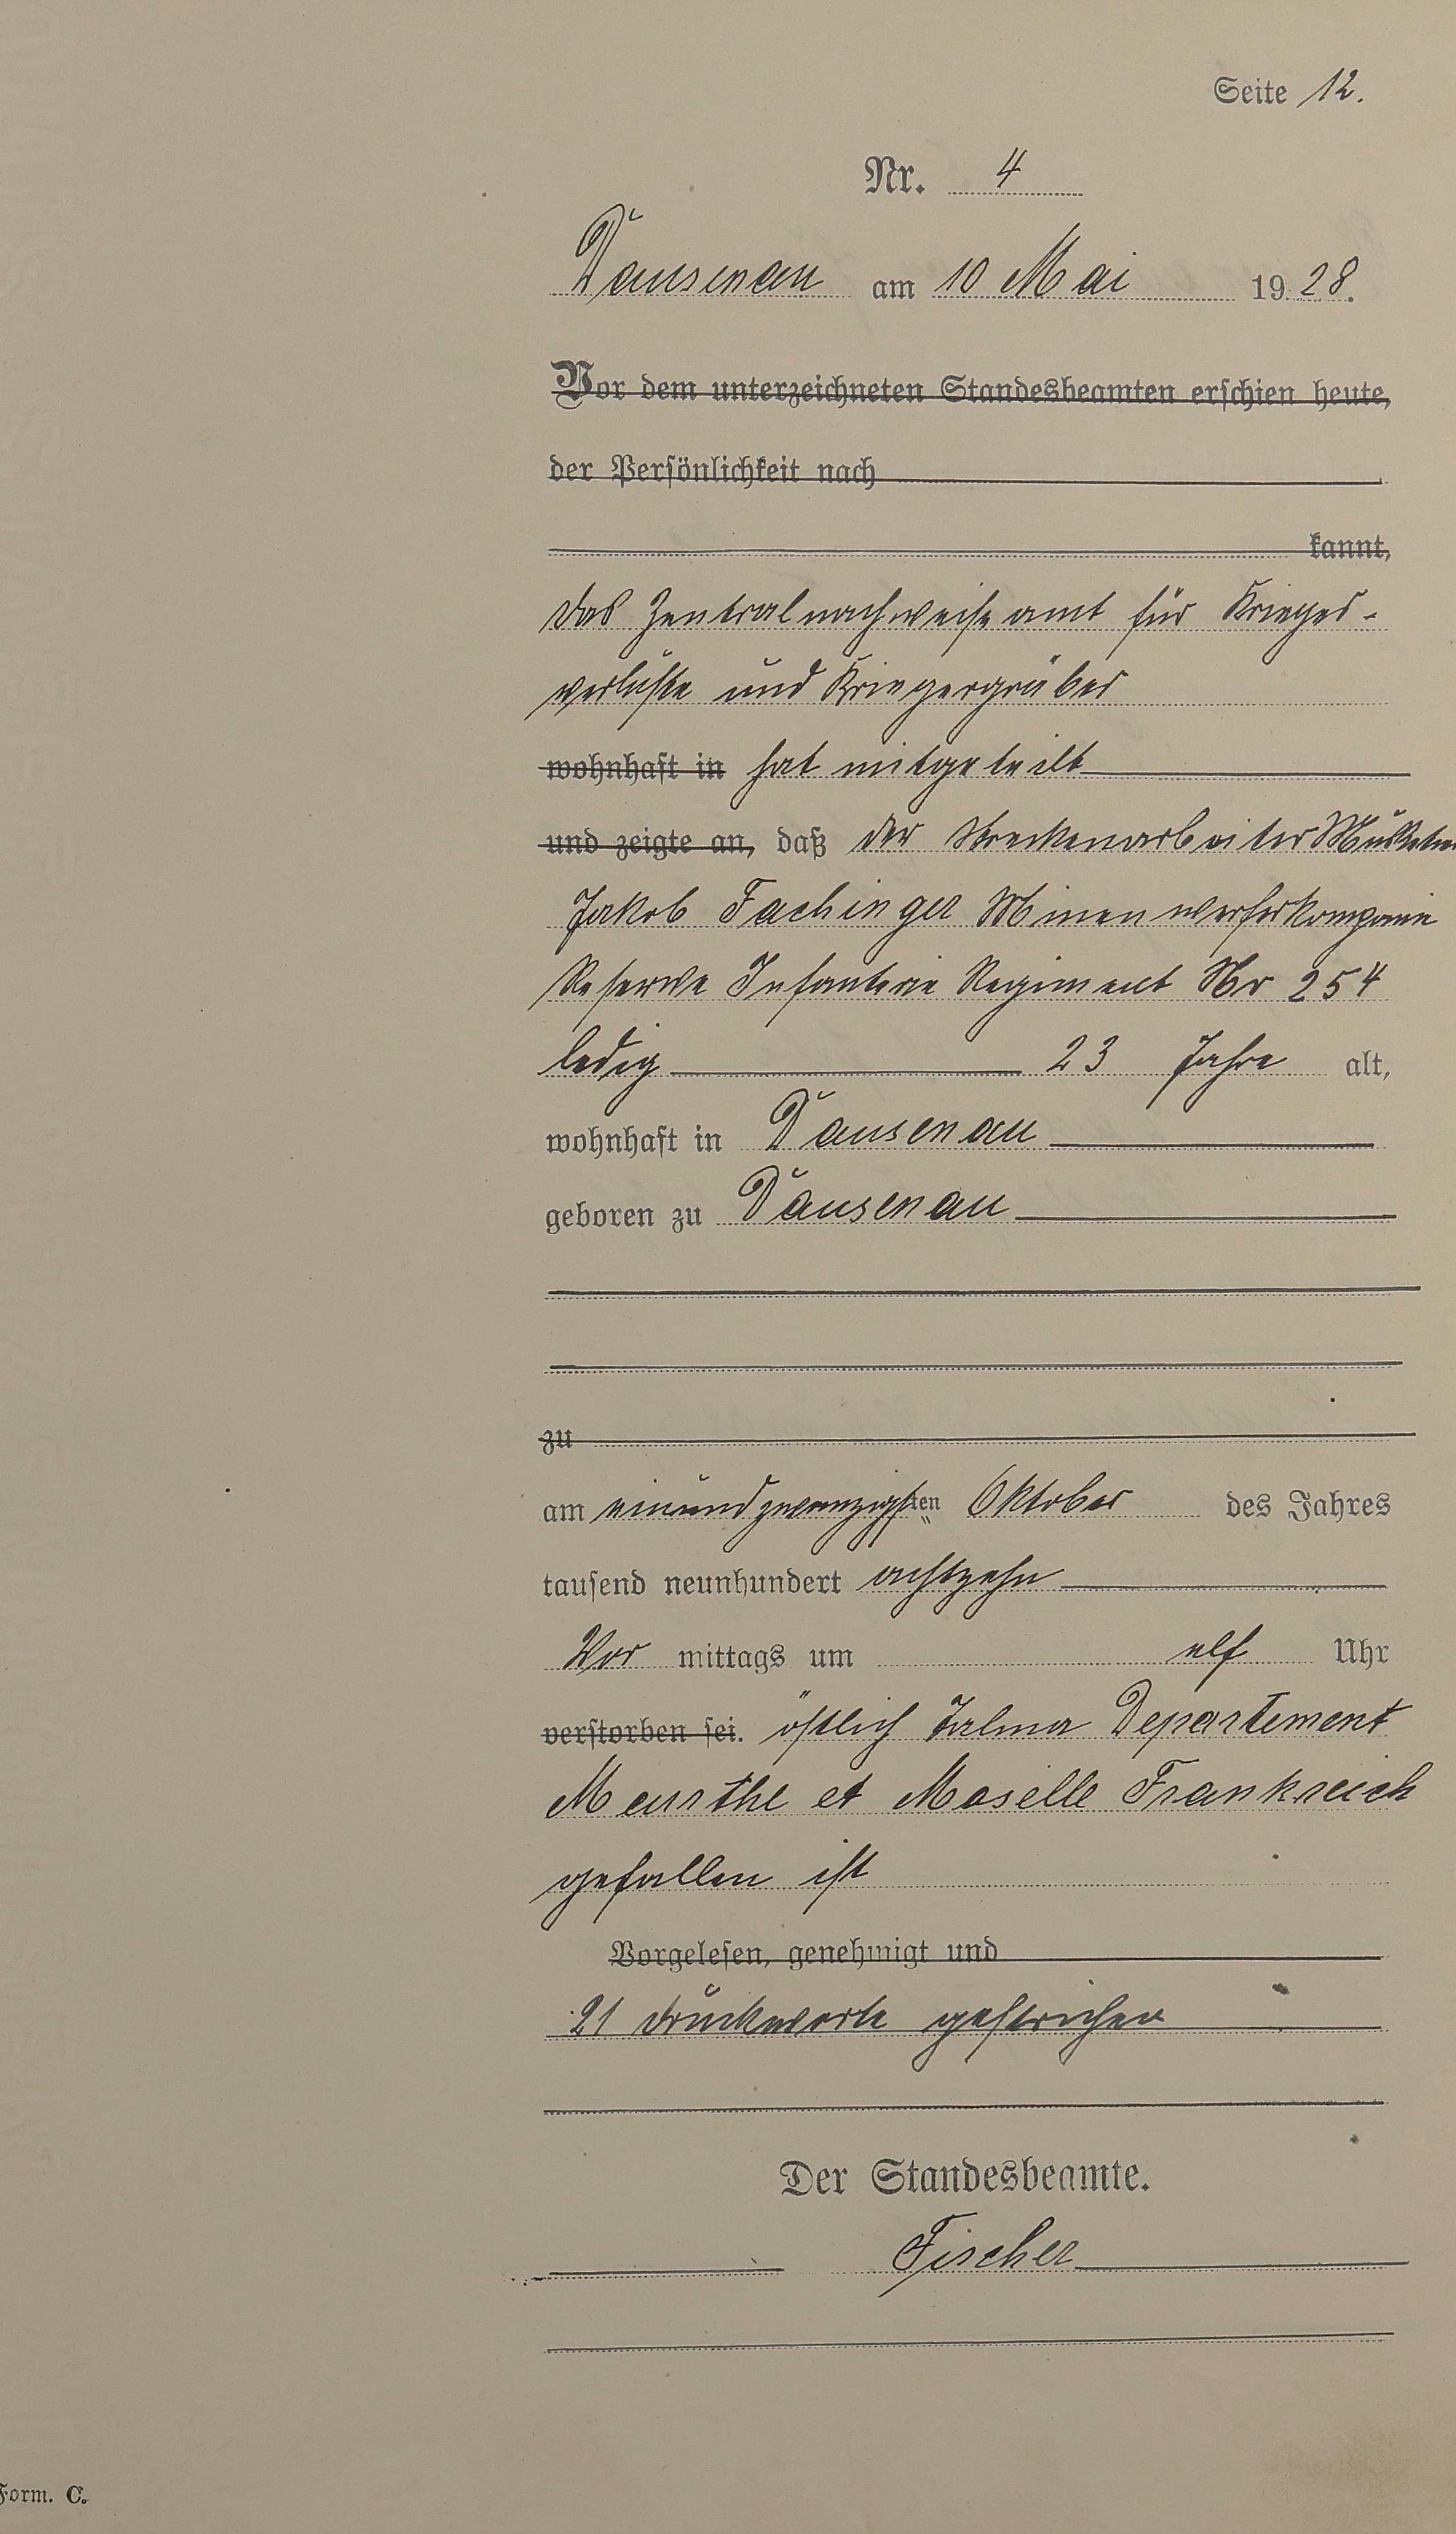 Seite 12.
Nr. 4
Dausenau am 10 Mai 1928.
Vor dem unterzeichneten Standesbeamten erschien heute,
der Persönlichkeit nach
kannt,
das Zentralnachweiseamt für Krieges-
verluste und Kriegergräber
wohnhaft in hat mitgeteilt
und zeigte an, daß der Streckenarbeiter Musketier
Jakob Fachinger Minenwerferkompanie
Reserve Infanterie Regiment Nr 254
ledig 23 Jahre alt,
wohnhaft in Dausenau
geboren zu Dausenau
zu
am einundzwanzigsten Oktober des Jahres
tausend neunhundert achtzehn
Vor mittags um elf Uhr
verstorben sei. östlich Departement
Meurthe et Moselle Frankreich
gefallen ist
Vorgelesen, genehmigt und
21 Druckworte gestrichen
Der Standesbeamte.
Fischer
Form. C.